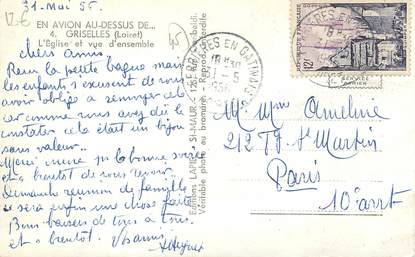 12€
31. Mai 56.
EN AVION AU-DESSUS DE...
4. GRISELLES (Loiret)
L'Église et vue d'ensemble
chers amis
Pour la petite bague mais
les enfants s'excusent de vous
avoir obligé a renvoyer cela
car comme vous avez dû le
constater cela était un bijou
sans valeur..
Merci encore pr la bonne
et a bientot de vous revoir.
Dimanche reunion de famille
ce sera enfin une chose faite
Bons baisers de tous à tous
et a bientot. Vos amis
Editions LAPIE - ST-MAUR
Véritable photo au bromure - Reproduction interdite
FERRIERES EN GATINAIS
18H30
31-5
1956
POSTES
12F
Mr Mme Ameline
212 Fg St Martin
Paris
10e arrt